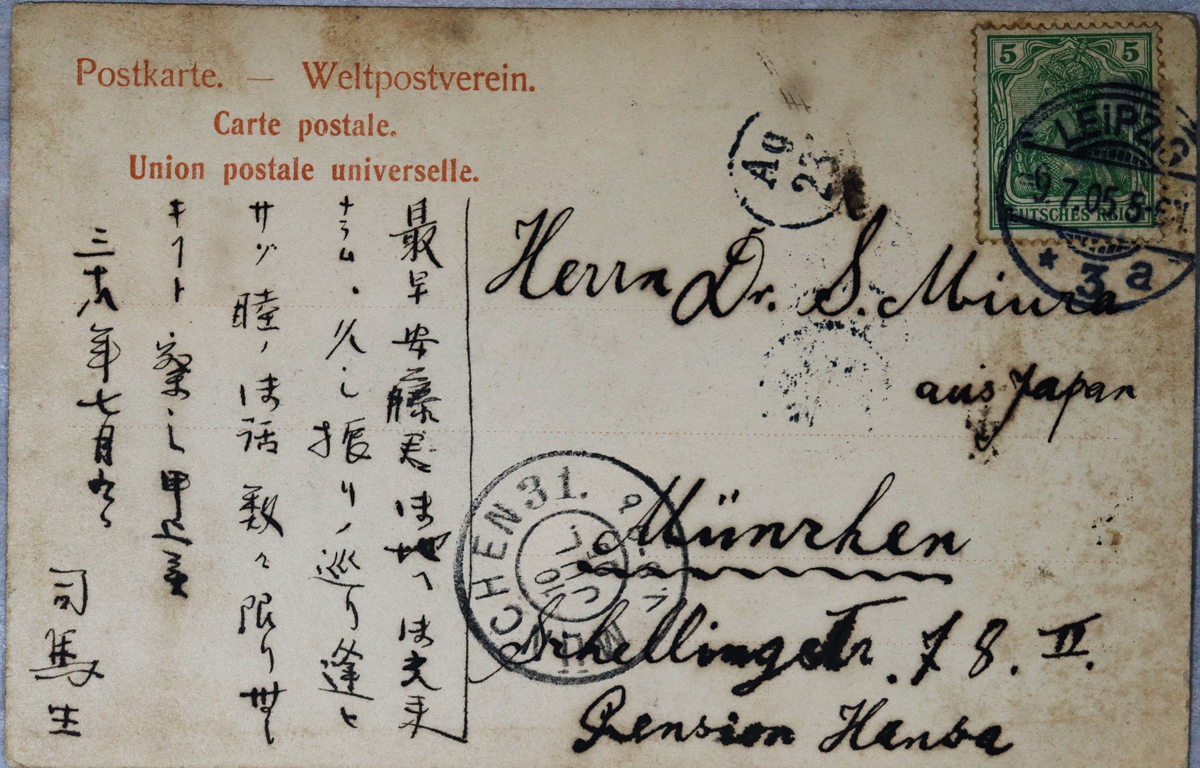 Postkarte. — Weltpostverein.
Carte postale.
Union postale universelle.
5 5
DEUTSCHES REICH
LEIPZIG
9.7.05.5-6
* 3 a
Ag
23
Herrn Dr. S. Miura
aus Japan
München
Schellingstr. 78. II.
Pension Hansa
MÜNCHEN 31.
10 JUL
最早安藤君は地へは
ナラム、久し振りノ巡り逢ヒ
サゾ睦ノは話数々限り無し
キフト察し申上候
三十八年七月九日
司馬生